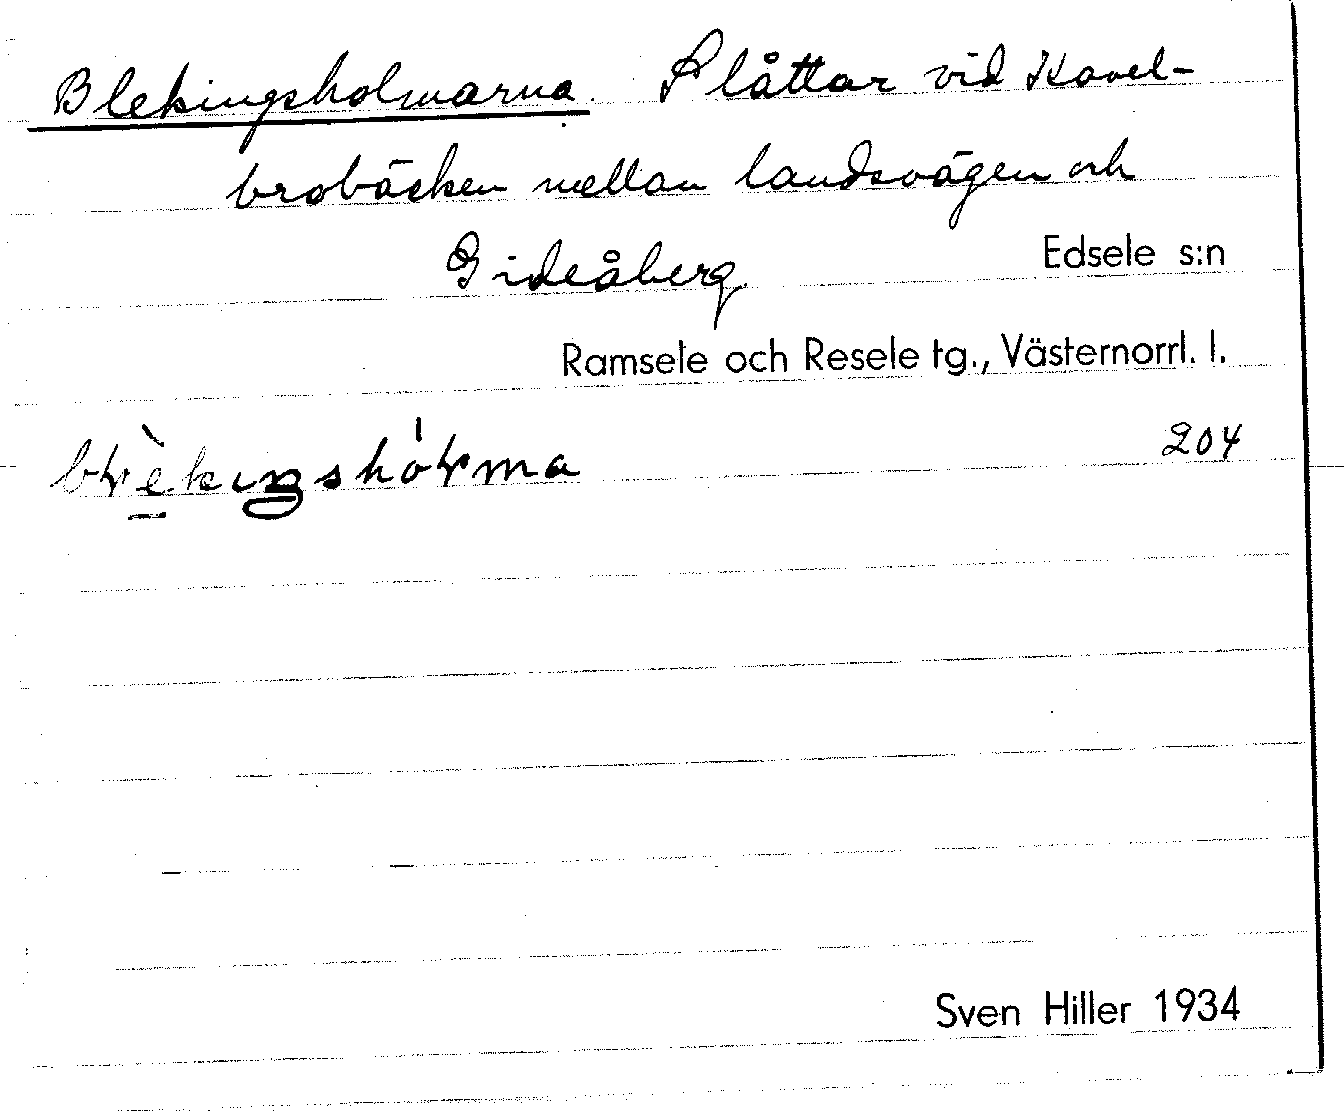 Blekingsholmarna. Slåttar vid Kavel-
brobäcken mellan landsvägen och
Gideåberg
Edsele s:n
Ramsele och Resele tg., Västernorrl. l.
204
Sven Hiller 1934